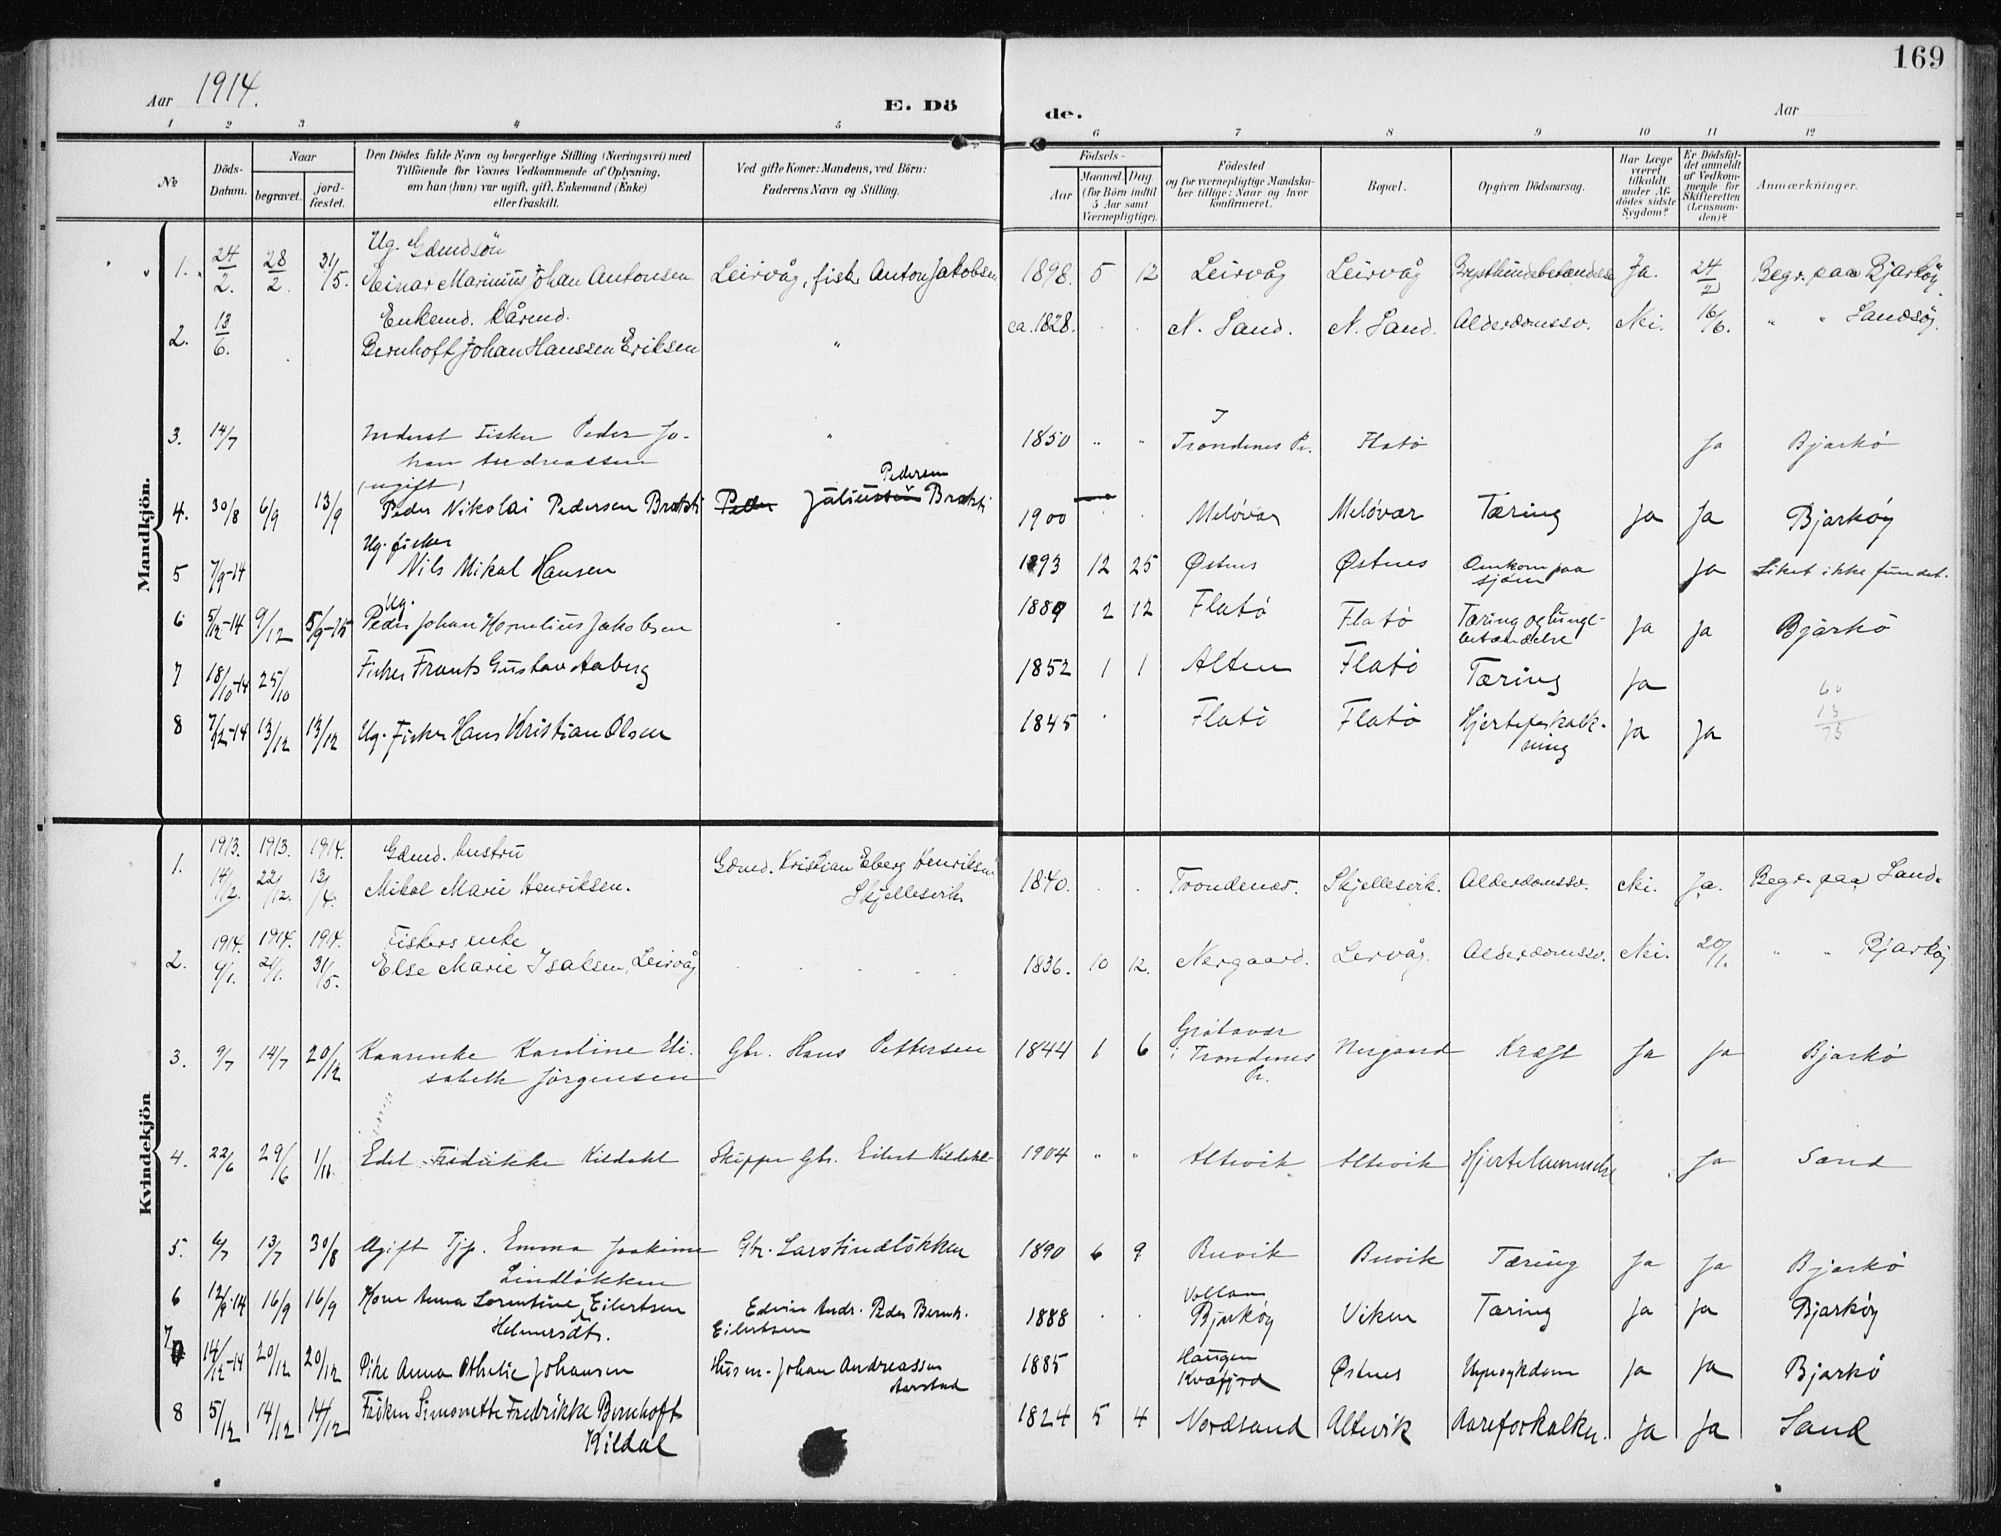 169
Aar 1914.
E. Dö
de.
Aar
1 2 3 4 5 6 7 8 9 10 11 12
No
Döds-Datum.
Naar
begravet.
jord-fæstet.
Den Dödes fulde Navn og borgerlige Stilling (Næringsvei) med
Tilföiende for Voxnes Vedkommende af Oplysning,
om han (hun) var ugift, gift, Enkemand (Enke)
eller fraskilt.
Ved gifte Koner: Mandens, ved Börn:
Faderens Navn og Stilling.
Födsels-
Aar
Maaned. Dag.
(for Börn indtil
5 Aar samt
Værnepligtige).
Födested
og for værnepligtige Mandska-
ber tillige: Naar og hvor
konfirmeret.
Bopæl.
Opgiven Dödsaarsag.
Har Læge
været
tilkaldt
under Af-
dödes sidste
Sygdom?
Er Dödsfal-
det anmeldt
af Vedkom-
mende for
Skifteretten
(Lensman-
den)?
Anmærkninger.
Mandkjön.
Ug. Gdmdsön
1. 24/2. 28/2 31/5. Einar Marinius Johan Antonsen Leirvåg, fisk. Anton Jakobsen 1898. 5 12 Leirvåg Leirvåg Brysthindebetændelse Ja. 24/2 Begr. paa Bjarköy.
Enkemd. kårmd.
2. 13/6. Bernhoft Johan Hanssen Eriksen " ca. 1828. N. Sand. N. Sand. Alderdomssv. Nei. 16/6. " " Sandsöy.
3. 14/7 Inderst Fisker Peder Jo- " 1850 " " I Trondenes Pr. Flatö Ja Bjarkö
han Andreassen
(ugift)
4. 30/8 6/9 13/9 Peder Nikolai Pedersen Brokti Peder Juliussen Pedersen Brokti 1900 Melövær Melövær Tæring Ja Ja Bjarköy
Ug. fisker
5 7/9-14 Nils Mikal Hansen 1893 12 25 Østnes Østnes Omkom paa sjøen Ja Liket ikke fundet.
Ug.
6 5/12-14 9/12 5/9-15 Peder Johan Kornelius Jakobsen 1889 2 12 Flatö Flatö Tæring og lunge-betændelse Ja Ja Bjarkö
7 18/10-14 25/10 Fisker Frants Gustav Aaberg 1852 1 1 Alten Flatö Tæring Ja
60
15
/75
8 7/12-14 13/12 13/12 Ug. Fisker Hans Kristian Olsen 1845 Flatö Flatö Hjerteforkalk-ning Ja Ja
Kvindekjön
1913. 1913. 1914. Gdmd. hustru
1. 14/12. 22/12. 13/4. Mikal Marie Henriksen. Gdmd. Kristian Eberg Henriksen Skjellesvik 1840. Trondenes. Skjellesvik. Alderdomssv. Nei. Ja. Begr. paa Sand.
1914. 1914. 1914. Fiskers enke
2. 9/1. 21/1. 31/5. Else Marie Isaksen, Leirvåg 1836. 10 12. Nergaard. Lervåg. Alderdomssv. Nei. 20/1. " " Bjarköy.
3. 9/7 14/7 20/12 Kaarenke Karoline Eli- Gbr. Hans Pettersen 1844 1 6 Grötavær i Trondenes Pr. Nergaard Kræft Ja Ja Bjarkö
sabeth Jörgensen
4. 22/6 29/6 1/11 Edel Fredrikke Kildahl Skipper Gbr. Eilert Kildahl 1904 " " Altevik Altevik Hjertelammelse Ja Sand
5. 6/7 13/7 30/8 Ugift Tjp. Emma Joakime Gbr. Lars Lindløkken 1890 6 9 Buvik Buvik Tæring Ja Ja Bjarkö
Lindløkken
6 12/9-14 16/9 16/9 Kone Anna Lorentine Eilertsen Edvin Andr. Peder Bernh. Eilertsen 1888 Vollan Bjarköy Viken Tæring Ja Ja Bjarköy
Helmersdt.
7 14/12-14 20/12 20/12 Pike Anna Othelie Johansen Husm. Johan Andreassen Aarstad 1885 Haugen Kvæfjord Østnes Nyresykdom Ja Ja Bjarkö
8 5/12 14/12 14/12 Fröken Simonette Fredrikke Bernhoft 1824 5 4 Nordsand Altevik Aareforkalkn. Ja Ja Sand
Kildal